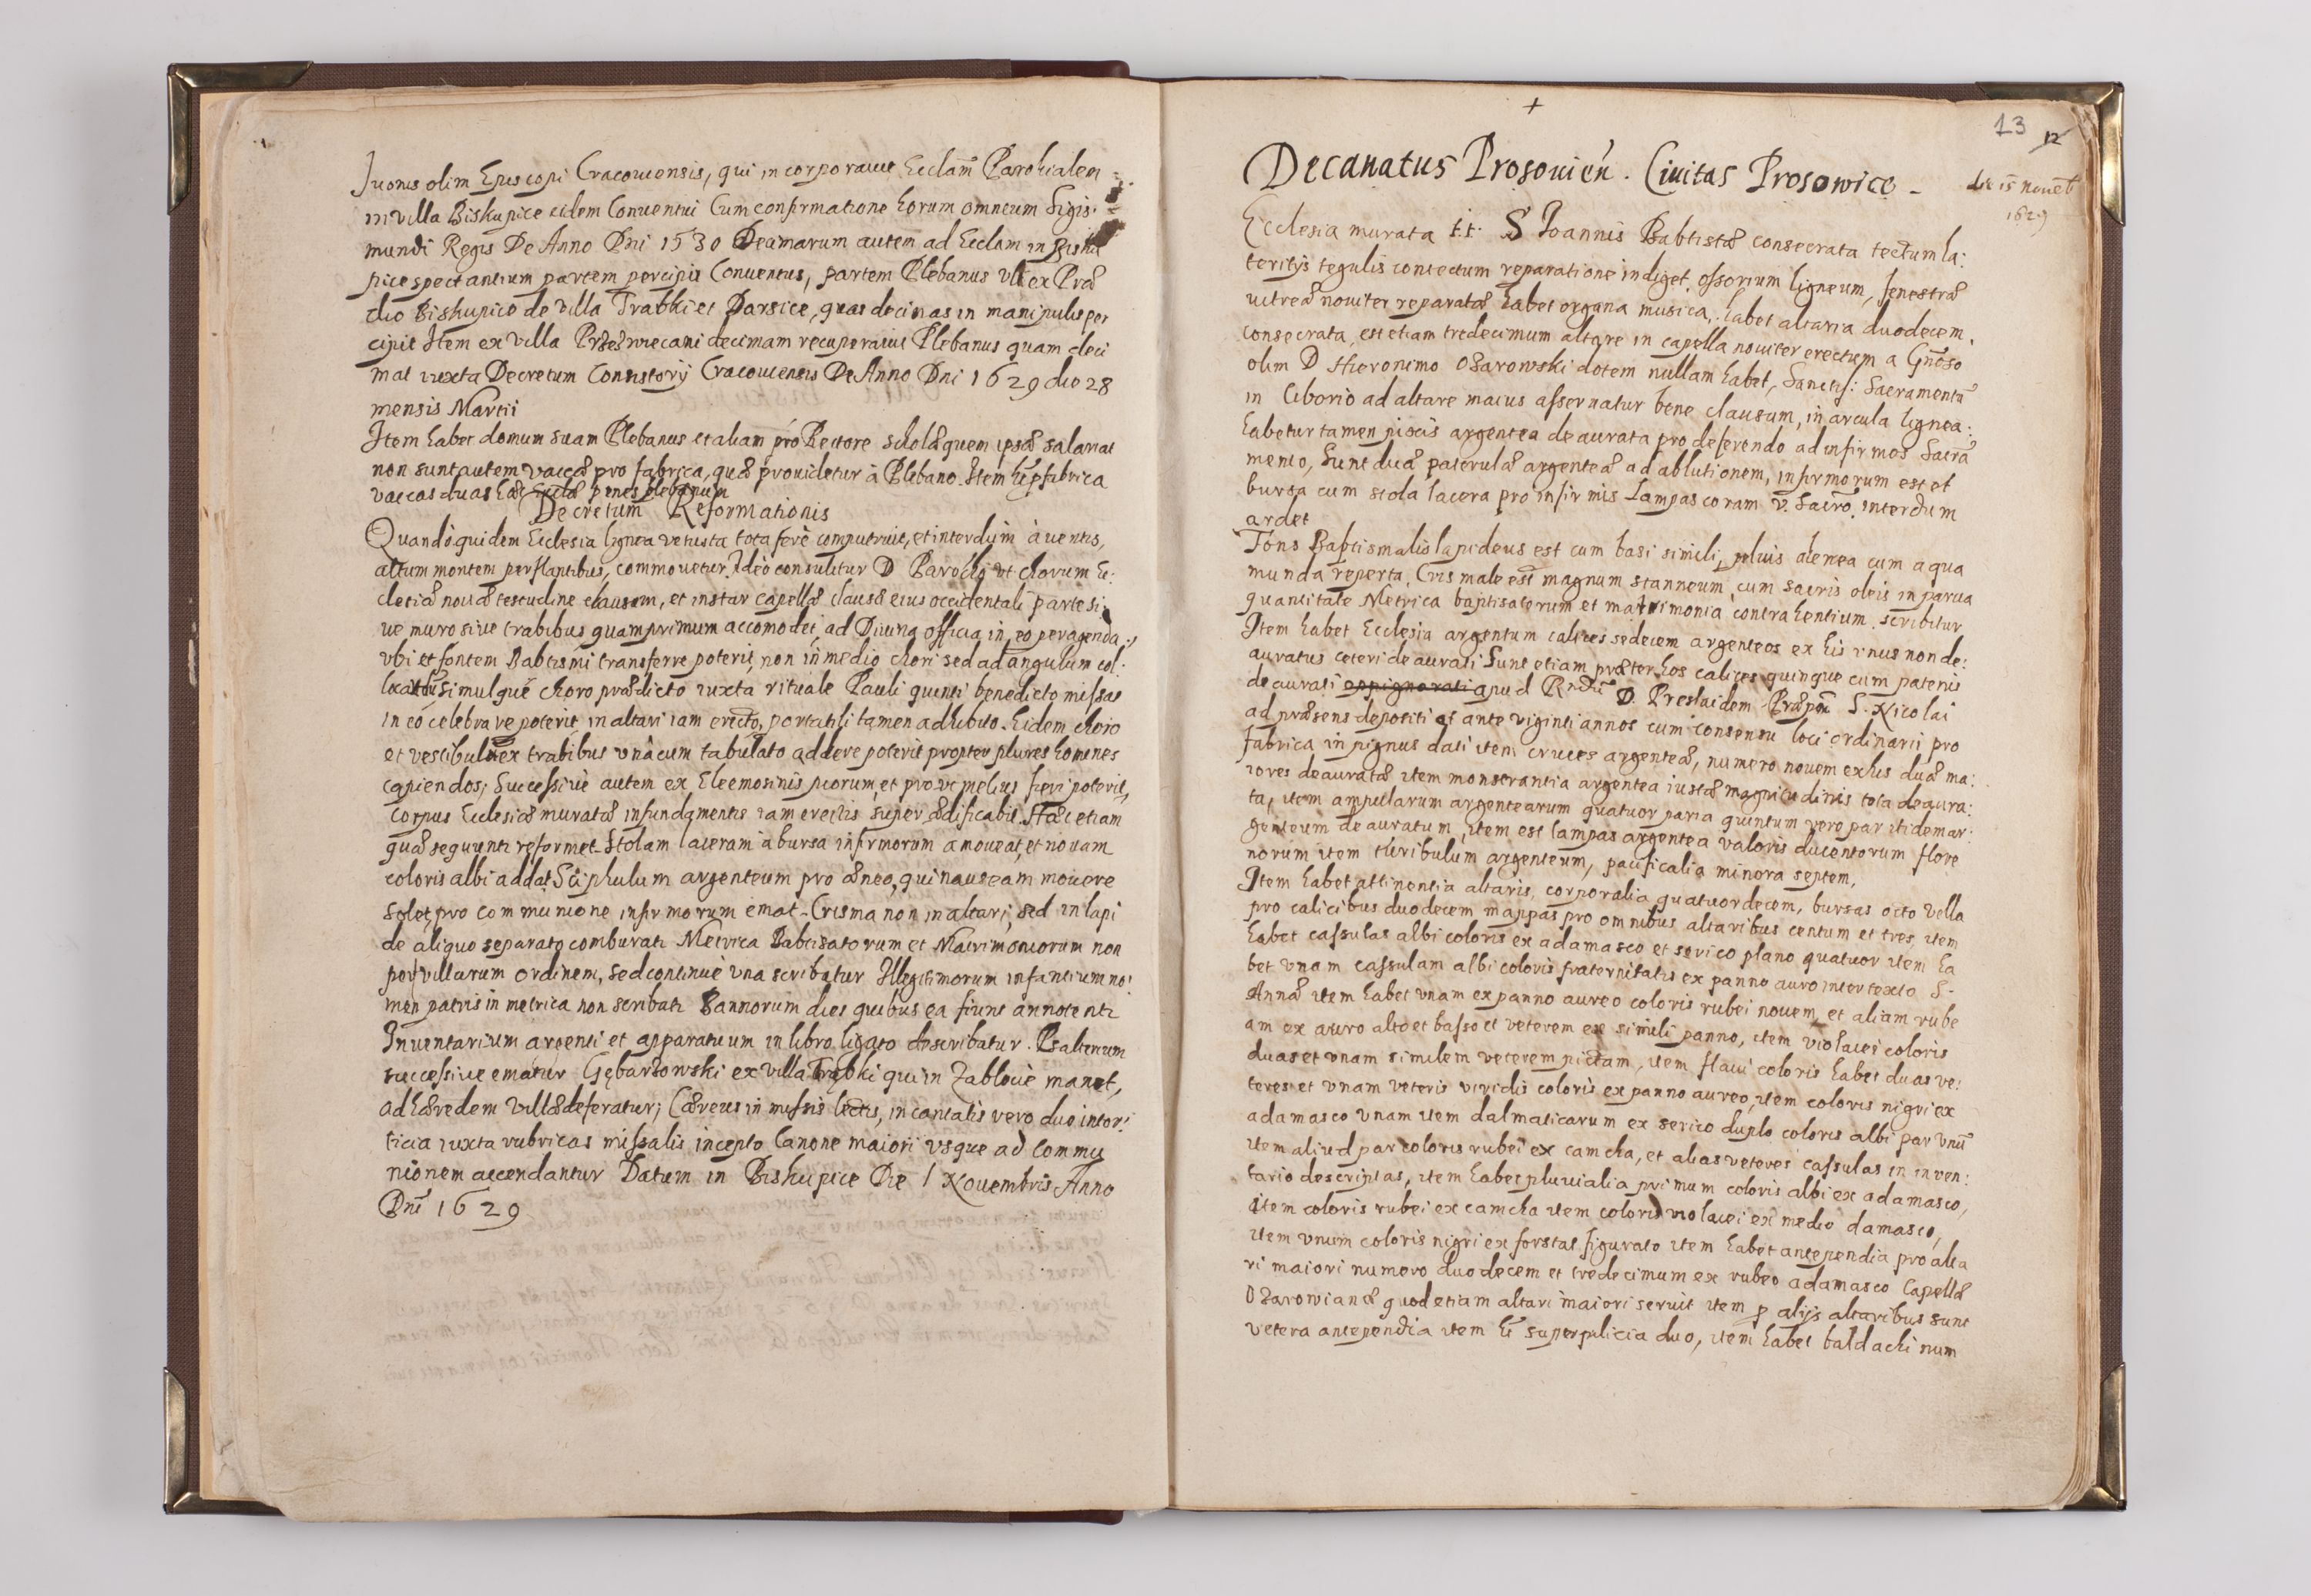 Iuonis olim Episcopi Cracouiensis, qui incorporauit Ecclam Parohialem
in villa Biskupice eidem Conuentui Cum confirmatione horum omnium Sigis:
mundi Regis De Anno Dni 1530 Decimarum autem ad Ecclam in Bisku
pice spectantium partem percipit Conuentus, partem Plebanus vt ex Præ
dio Biskupice de villa Trabki et Darsice, quas decimas in manipulis per
cipit Item ex villa Przebieczani decimam recuperauit Plebanus quam deci
mat iuxta Decretum Consistorij Cracouiensis De Anno Dni 1629 die 28
mensis Martii
Item habet domum suam Plebanus et aliam pro Rectore scholæ quem ipse salariat
non sunt autem vaccæ pro fabrica, quæ prouidetur à Plebano. Item hẽt fabrica
vaccas duas penes plebanum
Decretum Reformationis
Quandoquidem Ecclesia lignea vetusta tota ferè computruit, et interdùm à ventis,
altum montem perflantibus, commouetur. Ideò consulitur D Parocho vt chorum Ec:
clesiæ nouæ testudine clausum, et instar capellæ clausæ eius occidentali parte si
ue muro siue trabibus quamprimum accomodet, ad Diuina officia in eo peragenda:,
vbi et fontem Babtismi transferre poterit, non in medio chori sed ad angulum col:
locatũ simulque choro prædicto iuxta rituale Pauli quinti benedicto missas
in eo celebrare poterit in altari iam erecto, portatili tamen adhibito. Eidem choro
et vestibulũ ex trabibus vnà cum tabulato addere poterit propter plures homines
capiendos, Successiuè autem ex Eleemosinis piorum, et prout melius fieri poterit,
corpus Ecclesiæ muratæ in fundamentis iam erectis superædificabit. Hæc etiam
quæ sequuntr reformet. Stolam laceram à bursa infirmorum amoueat, et nouam
coloris albi addat Sciphulum argenteum pro æneo, qui nauseam mouere
solet, pro communione infirmorum emat. Crisma non in altari, sed in lapi
de aliquo separato comburatr Metrica Babtisatorum et Matrimoniorum non
per villarum ordinem, sed continuè vna scribatur Illegitimorum infantium no:
men patris in metrica non scribatr Bannorum dies quibus ea fiunt annotentr
Inuentarium argenti et apparatuum in libro ligato describatur. Psalterium
successiue ematur Gębarzowski ex villa Trąbki qui in Zablocie manet,
ad hæredem villæ deferatur; Cæreus in missis lectis, in cantatis vero duo intor:
ticia iuxta rubricas missalis incepto Canone maiori vsque ad Commu
nionem accendantur Datum in Biskupice Die 1 Nouembris Anno
Dni 1629
+
13 12
Decanatus Prosouień. Ciuitas Prosowice -
die 15 nouẽb
1629
Ecclesia murata t.t. S Ioannis Babtistæ consecrata tectum la:
teritijs tegulis contectum reparatione indiget, ossorium ligneum, fenestræ
uitreæ nouiter reparatæ habet organa musica, habet altaria duodecem
consecrata, est etiam tredecimum altare in capella nouiter erectum a Gñoso
olim D Hieronimo Ozarowski dotem nullam habet, Sanctiss: Sacramentũ
in Ciborio ad altare maius asseruatur bene clausum, in arcula lignea:
habetur tamen pixis argentea deaurata pro deferendo ad infirmos Sacra
mento, Sunt duæ paterulæ argenteæ ad ablutionem, infirmorum est et
bursa cum stola lacera pro infirmis Lampas coram v. Sacro. interdum
ardet
Fons Baptismalis lapideus est cum basi simili, peluis ahenea cum aqua
munda reperta, Crismale est magnum stanneum, cum sacris oleis in parua
quantitate Metrica baptisatorum et matrimonia contrahentium scribitur
Item habet Ecclesia argentum calices sedecem argenteos ex his vnus non de:
auratus ceteri deaurati Sunt etiam præter hos calices quinque cum patenis
deaurati oppignorati apud Rndũ D. Prestaidem Præpõ S. Nicolai
ad præsens depositi et ante viginti annos cum consensu loci ordinarii pro
fabrica in pignus dati item cruces argenteæ, numero nouem ex his duæ ma:
iores deauratæ item monstrantia argentea iustæ magnitudinis tota deaura:
ta, item ampullarum argentearum quatuor paria quintum vero par itidem ar:
genteum deauratum, item est lampas argentea valoris ducentorum flore
norum item thuribulum argenteum, pacificalia minora septem,
Item habet attinentia altaris, corporalia quatuordecem, bursas octo vella
pro calicibus duodecem mappas pro omnibus altaribus centum et tres, item
habet cassulas albi coloris ex adamasco et serico plano quatuor item ha
bet vnam cassulam albi coloris fraternitatis ex panno auro intertexto S.
Annæ item habet vnam ex panno aureo coloris rubei nouem, et aliam rube
am ex auro alto et basso et veterem ex simili panno, item violacei coloris
duas et vnam similem veterem pictam, item flaui coloris habet duas ve:
teres et vnam veteris viridis coloris ex panno aureo, item coloris nigri ex
adamasco vnam item dalmaticarum ex serico duplo coloris albi par vnũ
item aliud par coloris rubei ex camcha, et alias veteres cassulas in inuen:
tario descriptas, item habet pluuialia primum coloris albi ex adamasco,
item coloris rubei ex camcha item coloris violacei ex medio damasco,
item vnum coloris nigri ex forstat figurato item habet antependia pro alta
ri maiori numero duodecem et tredecimum ex rubeo adamasco Capellæ
Ozarowianæ quod etiam altari maiori seruit item p alijs altaribus sunt
vetera antependia item hẽt superpelicia duo, item habet baldachinum